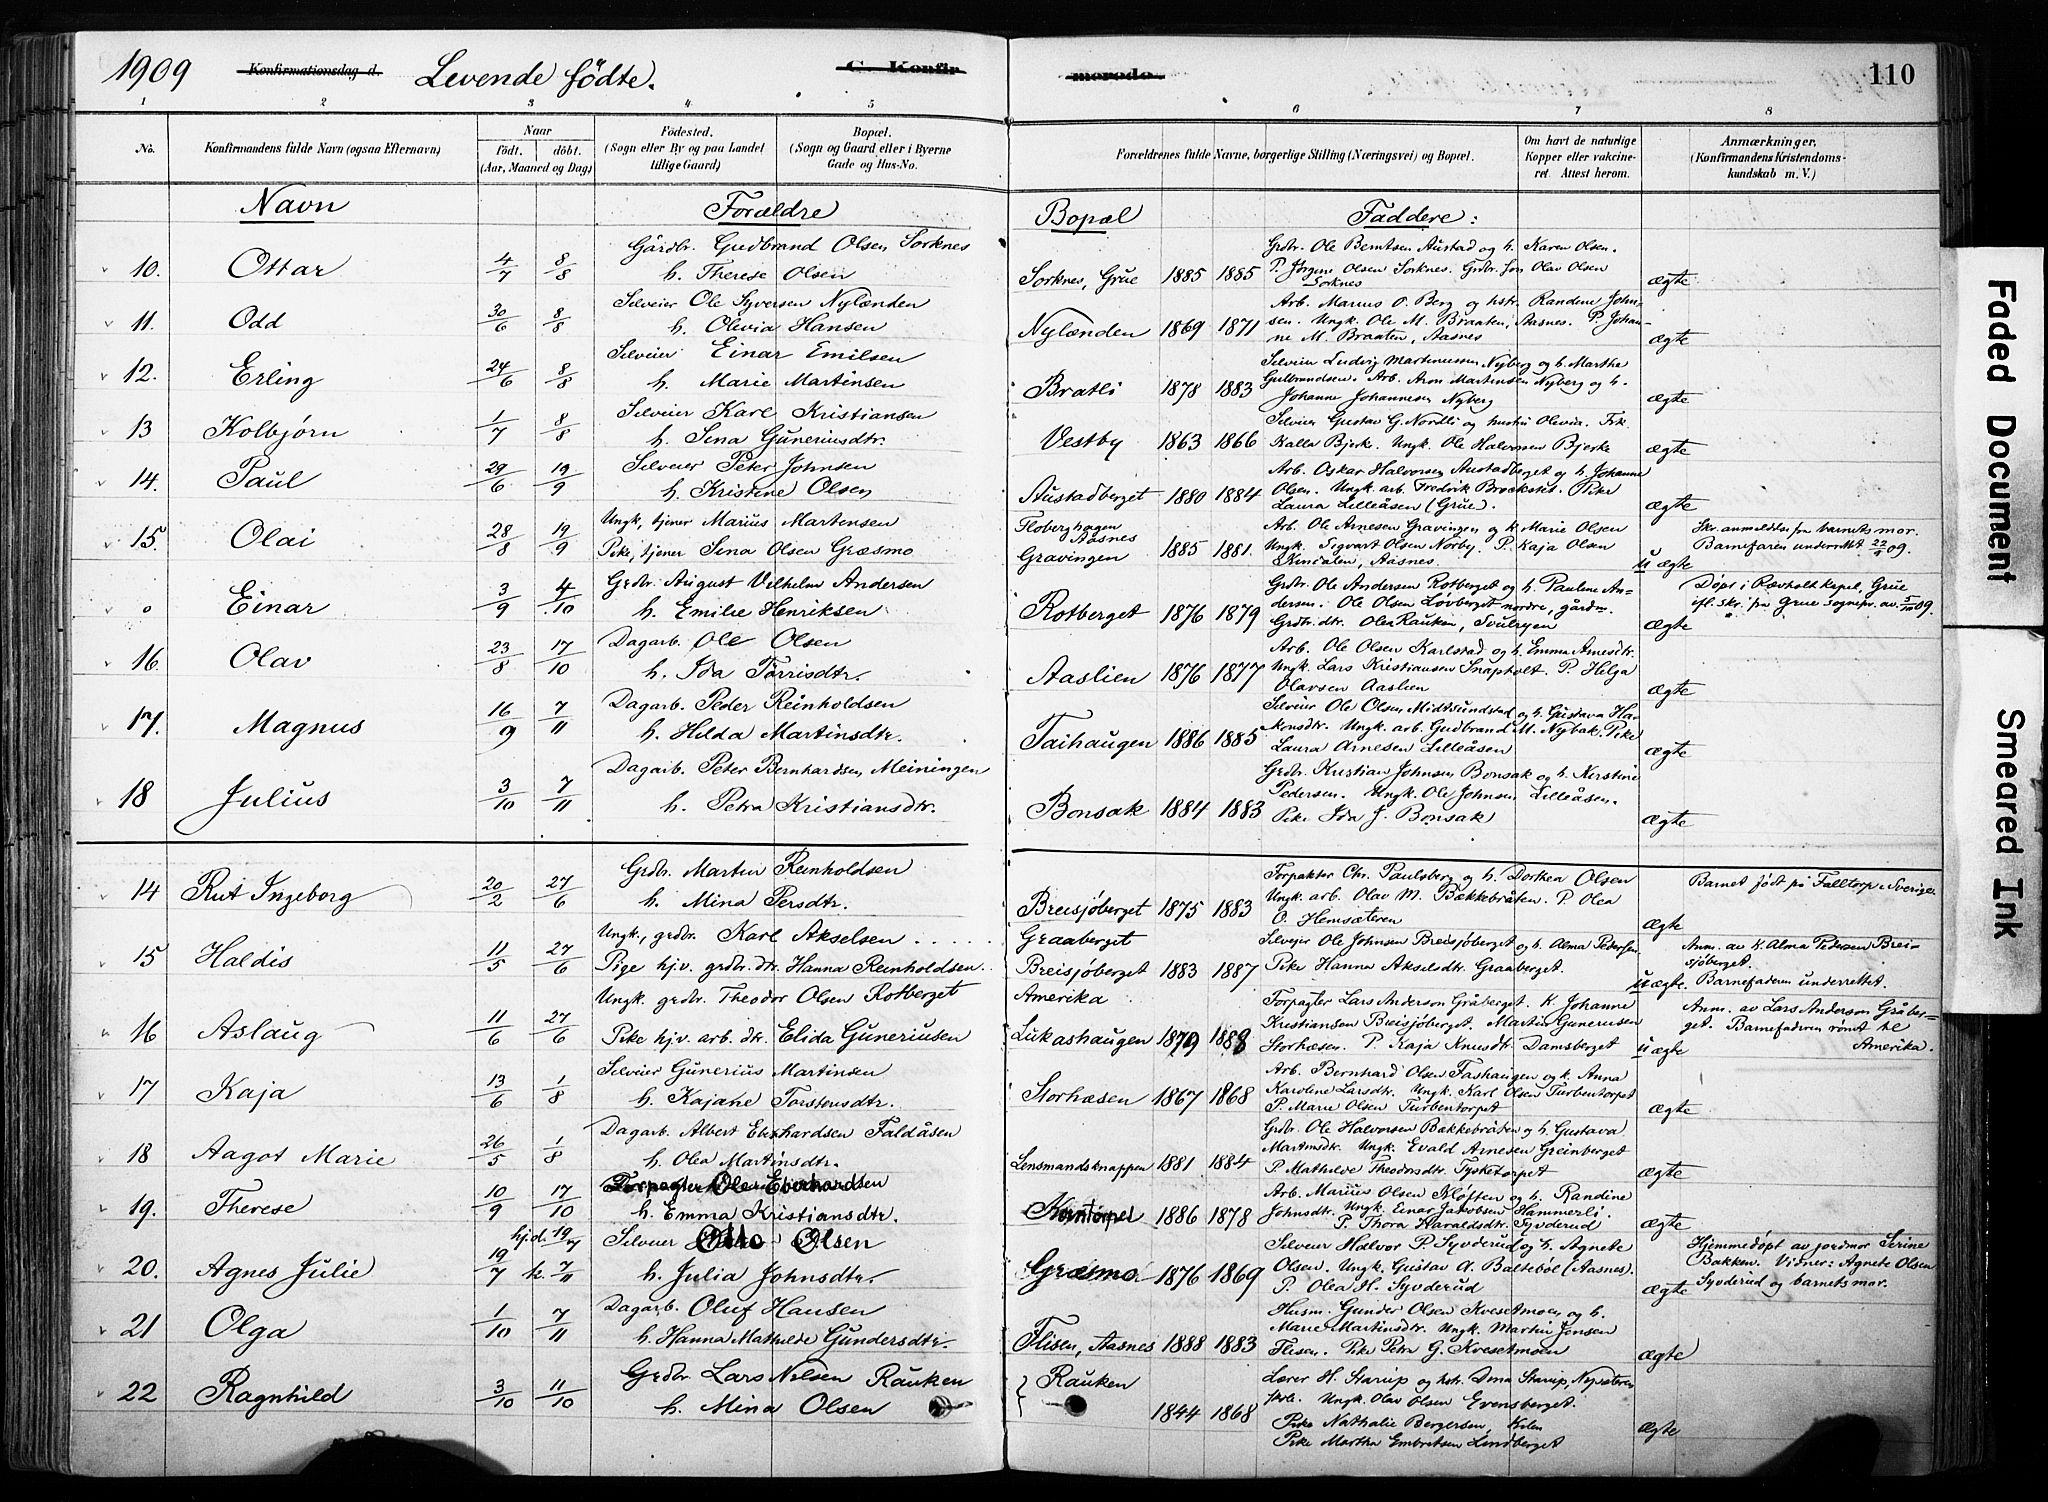 1909 Konfirmationsdag d. Levende fødte. C. Konfir merede. 110
1 2 3 4 5 6 7 8
No. Konfirmandens fulde Navn (ogsaa Efternavn) Naar født. døbt. (Aar, Maaned og Dag) Fødested. (Sogn eller By og paa Landet tillige Gaard) Bopæl. (Sogn og Gaard eller i Byerne Gade og Hus-No.) Forældrenes fulde Navne, borgerlige Stilling (Næringsvei) og Bopæl. Om havt de naturlige Kopper eller vakcineret. Attest herom. Anmærkninger, (Konfirmandens Kristendomskundskab m. V.)
Navn Forældre Bopæl Faddere:
Gårdbr. Gudbrand Olsen Sorknes Grdbr. Ole Berntsen Austad og h. Karen Olsen.
10. Ottar 4/7 8/8 h. Therese Olsen Sorknes, Grue 1885 1885 P. Jørgine Olsen Sorknes. Grdbr. Olav Olsen Sorknes ægte
Selveier Ole Syversen Nylænden Arb. Marius O. Berg og hstr. Randene John-
11. Odd 30/6 8/8 h. Olevia Hansen Nylænden 1869 1871 sen. Ungk. Ole M. Braaten, Aasnes. P. Johan-
ne M. Braaten, Aasnes ægte
Selveier Einar Emilsen Selveier Ludvig Martinussen Nyberg og h. Marthe
12. Erling 24/6 8/8 h. Marie Martinsen Bratli 1878 1883 Gulbrandsen. Arb. Aron Martinsen Nyberg og h.
Johanne Johannesen Nyberg ægte
Selveier Karl Kristiansen Selveier Gustav G. Nordli og hustru Olevia. Frk.
13 Kolbjørn 1/7 8/8 h. Sina Guneriusdtr. Vestby 1863 1866 Kalla Bjerke. Ungk. Ole Halvorsen Bjerke ægte
Selveier Peter Johnsen Arb. Oskar Halvorsen Austadberget og h. Johanne
14. Paul 29/6 19/9 h. Kristine Olsen Austadberget 1880 1884 Olsen. Ungk. arb. Fredrik Brockstet. Pike
Laura Lilleåsen (Grue). ægte
Ungk, tjener Marius Martensen Floberghagen Aasnes Arb. Ole Arnesen Gravingen og h. Marie Olsen Skr. anmeldelse fra barnets mor.
15. Olai 28/8 19/9 Pike, tjener Sina Olsen Græsmo Gravingen 1885 1881. Ungk. Sigvart Olsen Norby. P. Kaja Olsen Barnefaren underrettet 22/9 09.
Kindalen, Aasnes. u ægte
Grdbr. August Vilhelm Andersen Grdbr. Ole Andersen Rotberget og h. Pauline An- Døpt i Revholt kapel, Grue
o Einar 3/9 4/10 h. Emilie Henriksen Rotberget 1876 1879 dersen. Ole Olsen Løvberget nordre, gårdm. ifl. skr. fra Grue sognepr. av 5/10 09.
Grdbr. dtr. Olea Rauken, Svulryen ægte
Dagarb. Ole Olsen Arb. Ole Olsen Karlstad og h. Emma Arnesdtr.
16. Olav 23/8 17/10 h. Ida Torrisdtr. Aaslien 1876 1877 Ungk. Lars Kristiansen Snapholt. P. Helga
Olavsen Aaslien ægte
Dagarb. Peder Reinholdsen Selveier Ole Olsen Midtsundstad og h. Gustava Ha-
17. Magnus 16/9 7/11 h. Hilda Martinsdtr. Taihaugen 1886 1885 konsdtr. Ungk. arb. Gudbrand M. Nybak. Pike
Laura Arnesen Lilleåsen ægte
Dagarb. Peter Bernhardsen Meiningen Grdbr. Kristian Johnsen Bonsak og h. Kirstine
18 Julius 3/10 7/11 h. Petra Kristiansdtr. Bonsak 1884 1883 Pedersen. Ungk. Ole Johnsen Lilleåsen.
Pike Ida J. Bonsak ægte
Grdbr. Martin Reinholdsen Forpakter Chr. Paulsberg og h. Dorthea Olsen Barnet født på Falltorp i Sverige.
14 Rut Ingeborg 20/2 27/6 h. Mina Persdtr. Breisjøberget 1875 1883 Ungk. arb. Olav M. Bækkebråten. P. Olea
O. Hemsæteren ægte
Ungk., grdbr. Karl Akselsen ..... Graaberget Selveier Ole Johnsen Breisjøberget og h. Alma Pedersen. Anm. av h. Alma Pedersen Brei-
15 Haldis 11/5 27/6 Pige hj.v. grdbr. dtr. Hanna Reinholdsen. Breisjøberget 1883 1887 Pike Hanna Akselsdtr. Graaberget. sjøberget.
u ægte. Barnefaderen underrettet.
Ungk. grdbr. Theodor Olsen Rotberget Amerika Forpagter Lars Anderson Gråberget. K. Johanne Anm. av Lars Anderson Gråber-
16 Aslaug 11/6 27/6 Pike hj.v. arb. dtr. Elida Guneriusen Lukashaugen 1879 1888 Kristiansen Breisjøberget. Martin Guneriusen get. Barnefaderen rømt til
Storhæsen. P. Kaja Knusdtr. Damsberget u ægte Amerika.
Selveier Gunerius Martinsen Arb. Bernhard Olsen Fashaugen og h. Anna
17 Kaja 13/6 1/8 h. Kajane Torstensdtr. Storhæsen 1867 1868 Karoline Larsdtr. Ungk. Karl Olsen Furbentorpet
P. Marie Olsen Furbentorpet ægte
Dagarb. Albert Eberhardsen Faldåsen Grdbr. Ole Halvorsen Bækkebråten og h. Gustava
18 Aagot Marie 26/5 1/8 h. Olea Martinsdtr. Lensmandsknappen 1881 1884 Martinsdtr. Ungk. Evald Arnesen Greinberget
P. Mathilde Theodorsdtr. Tysketorpet ægte
Forpagter Ole Eberhardsen Arb. Marius Olsen Kløften og h. Randine
19. Therese 10/9 17/10 h. Emma Kristiansdtr. Korntorpet 1886 1878 Johnsdtr. Ungk. Einar Jacobsen Hammerli.
P. Thora Haraldsdtr. Syvderud ægte
hj.d. 19/7 Selveier Otto Olsen Selveier Halvor P. Syvderud og h. Agnete Hjemmedøpt av jordmor Serine
20. Agnes Julie 19/7 k. 7/11 h. Julia Johnsdtr. Græsmo 1876 1869 Olsen. Ungk. Gustav A. Baltebøl (Aasnes). Bakken. Vidner: Agnete Olsen
P. Olea H. Syvderud ægte Syvderud og barnets mor.
Dagarb. Oluf Hansen Husm. Gunder Olsen Kvesetmoen og h.
21 Olga 1/10 7/11 h. Hanna Mathilde Gundersdtr. Flisen, Aasnes 1888 1883 Marie Martinsdtr. Ungk. Martin Jensen
Flisen. Pike Petra G. Kvesetmoen ægte
Grdbr Lars Nilsen Rauken Rauken Lærer H. Starup og hstr. Dina Starup, Nysæteren
22 Ragnhild 3/10 11/10 h. Mina Olsen 1844 1868 skole. Ungk. Olav Olsen Evensberget.
Pike Nathalie Bergersen, Kilen ægte
Pike Martha Embretsen Lindberget
Faded Document
Smeared Ink